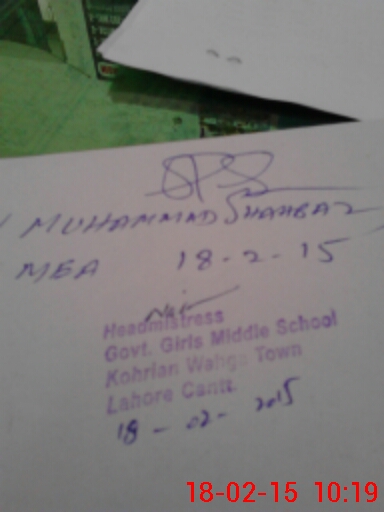 MUHAMMAD SHAHBAZ
MEA 18-2-15
Headmistress
Govt. Girls Middle School
Kohrian Wahga Town
Lahore Cantt.
18-02-2015
18-02-15 10:19